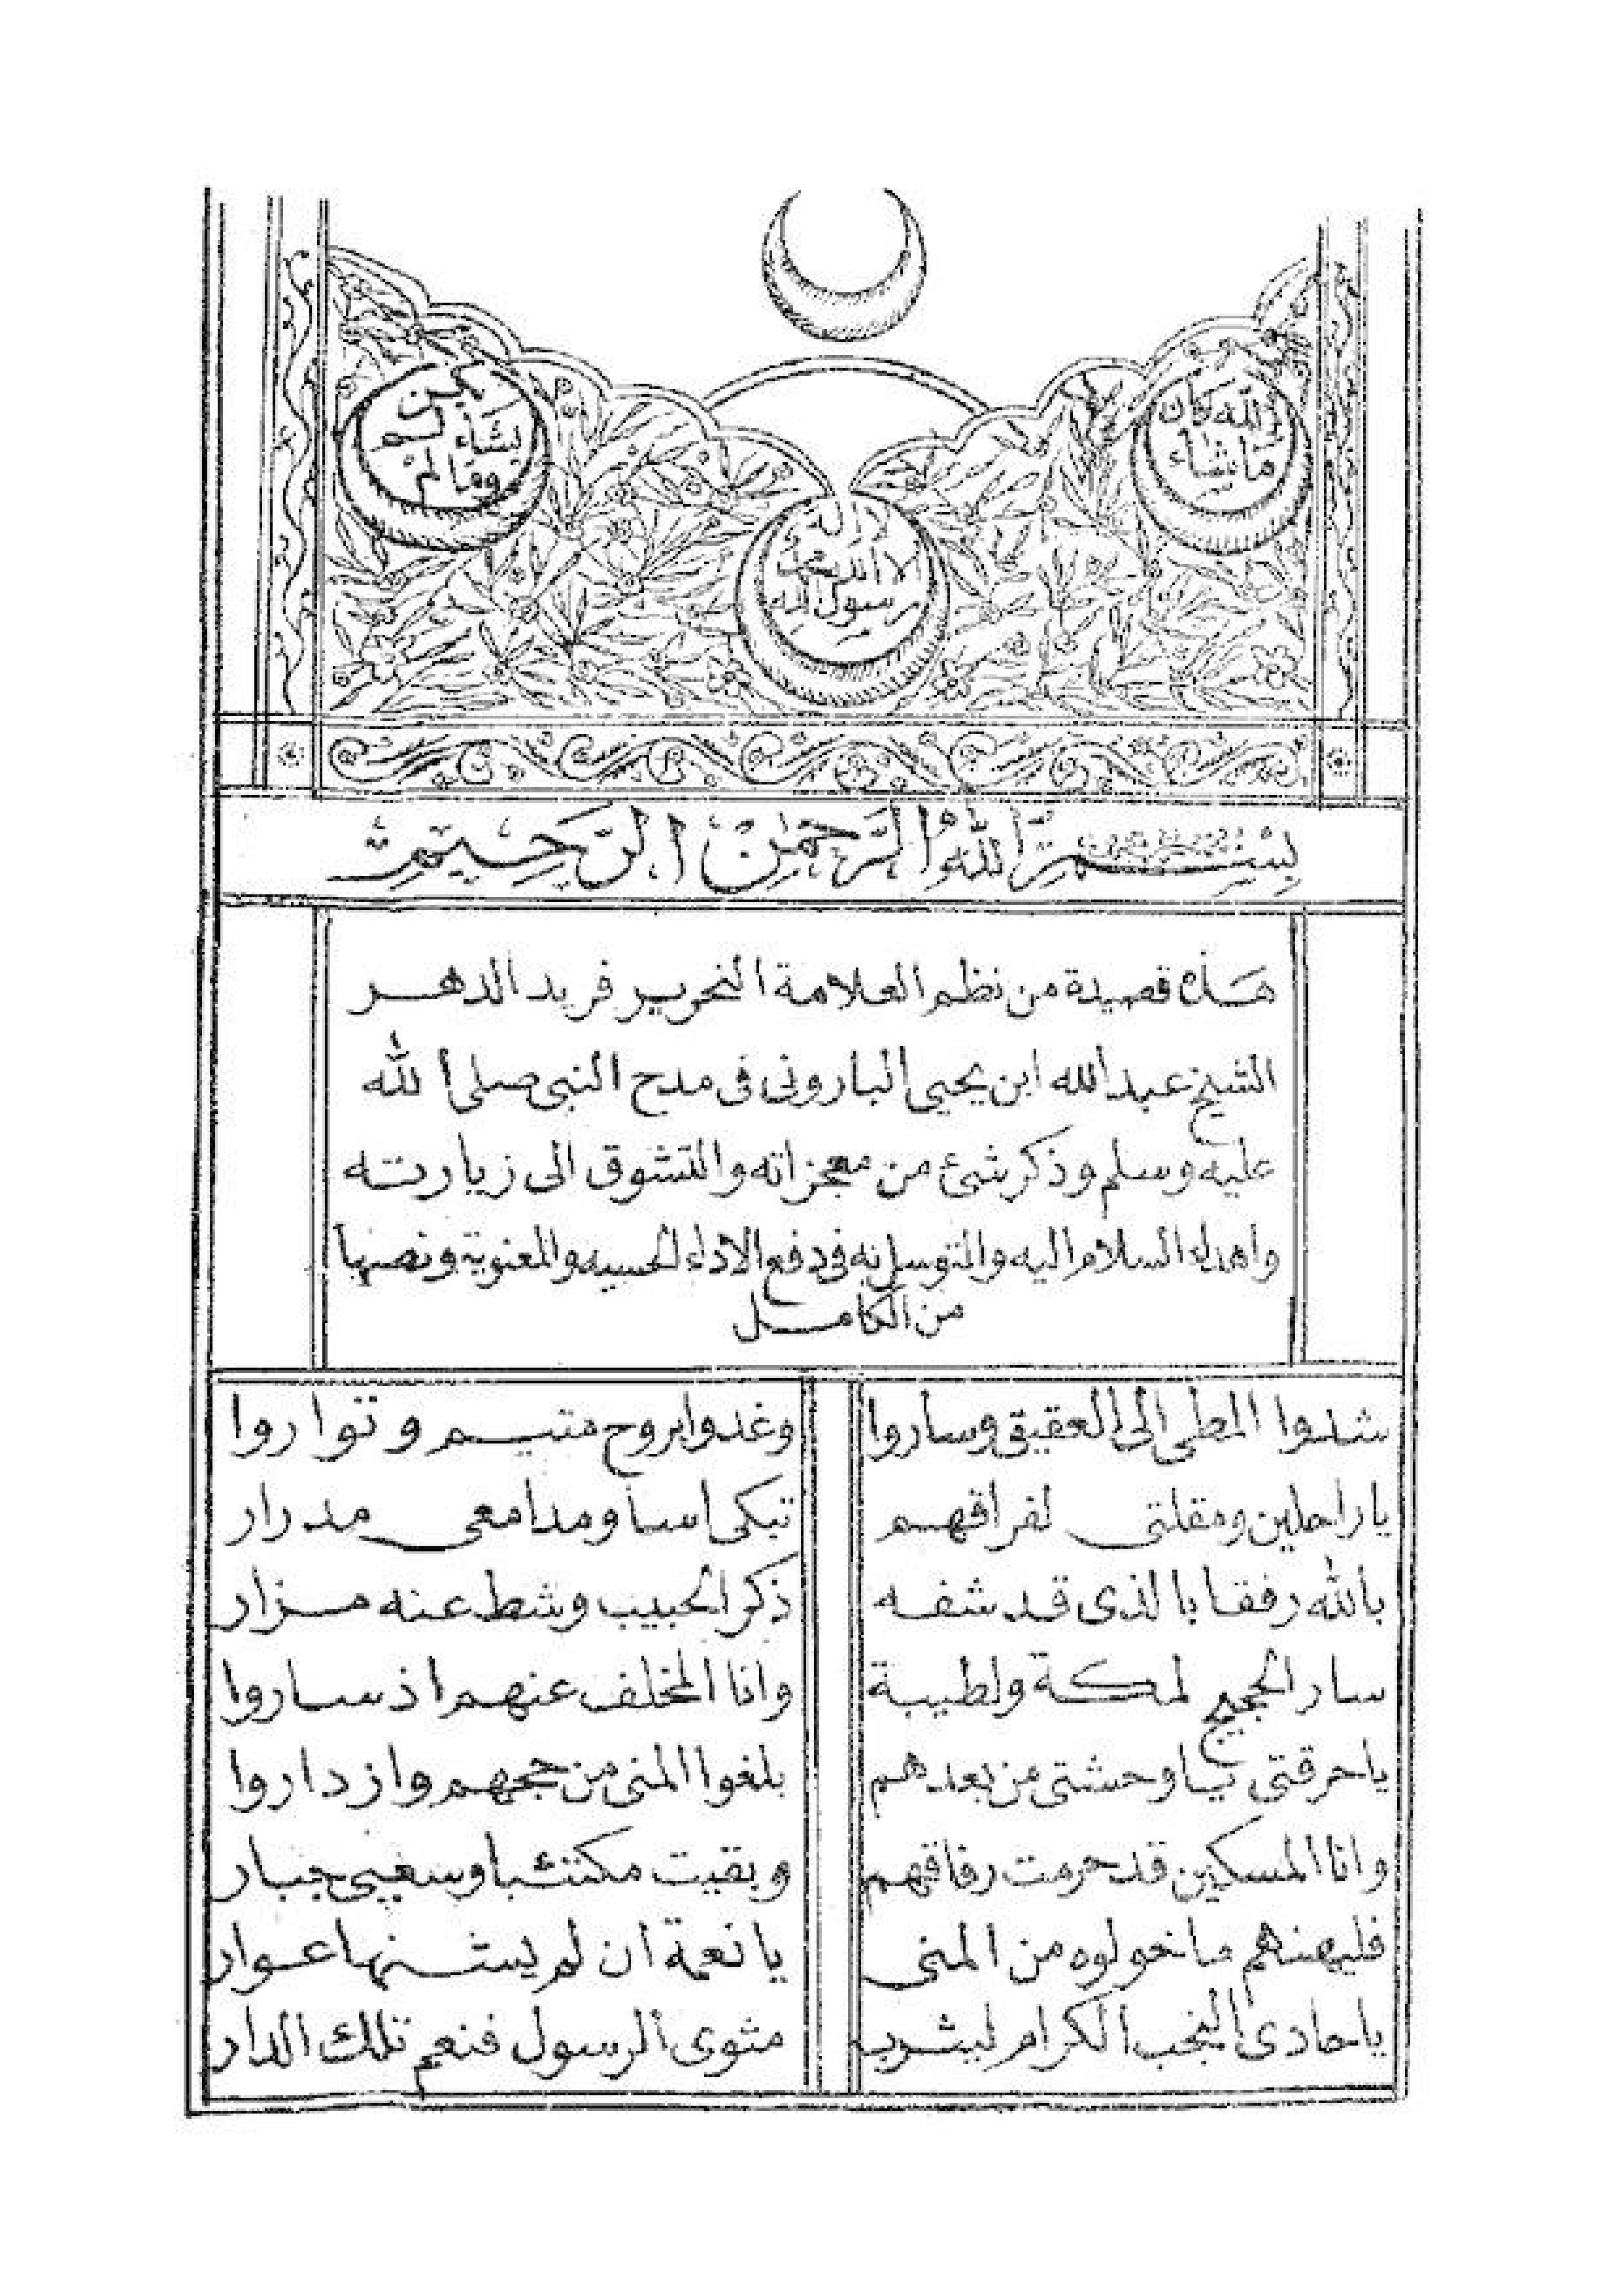 الله كان
ما يشاء
يكن
يشاء لم
وما لم
لا إله
إلا الله محمد
رسول الله
بِسْمِ اللهِ الرَّحْمٰنِ الرَّحِيمِ
هذه قصيدة من نظم العلامة النحرير فريد الدهر
الشيخ عبد الله ابن يحيى الباروني في مدح النبي صلى الله
عليه وسلم وذكر شئ من معجزاته والتشوق الى زيارته
واهداء السلام اليه والتوسل به في دفع الاداء الحسيه والمعنوية ونصها
من الكامل
شدوا المطي الى العقيق وساروا وغدوا بروح متيم وتواروا
يا راحلين ومقلتي لفراقهم تبكي اسا ومدامعي مدرار
بالله رفقا بالذي قد شفه ذكر الحبيب وشط عنه مزار
سار الحجيج لمكة ولطيبة وانا المخلف عنهم اذ ساروا
يا حرقتي يا وحشتي من بعدهم بلغوا المنى من حجهم وازداروا
وانا المسكين قد حرمت رفاقهم وبقيت مكتئبا وسعيي جبار
فليهنهم ما خولوه من المنى يا نعمة ان لم يشنها عوار
يا حادي النجب الكرام ليثرب مثوى الرسول فنعم تلك الدار